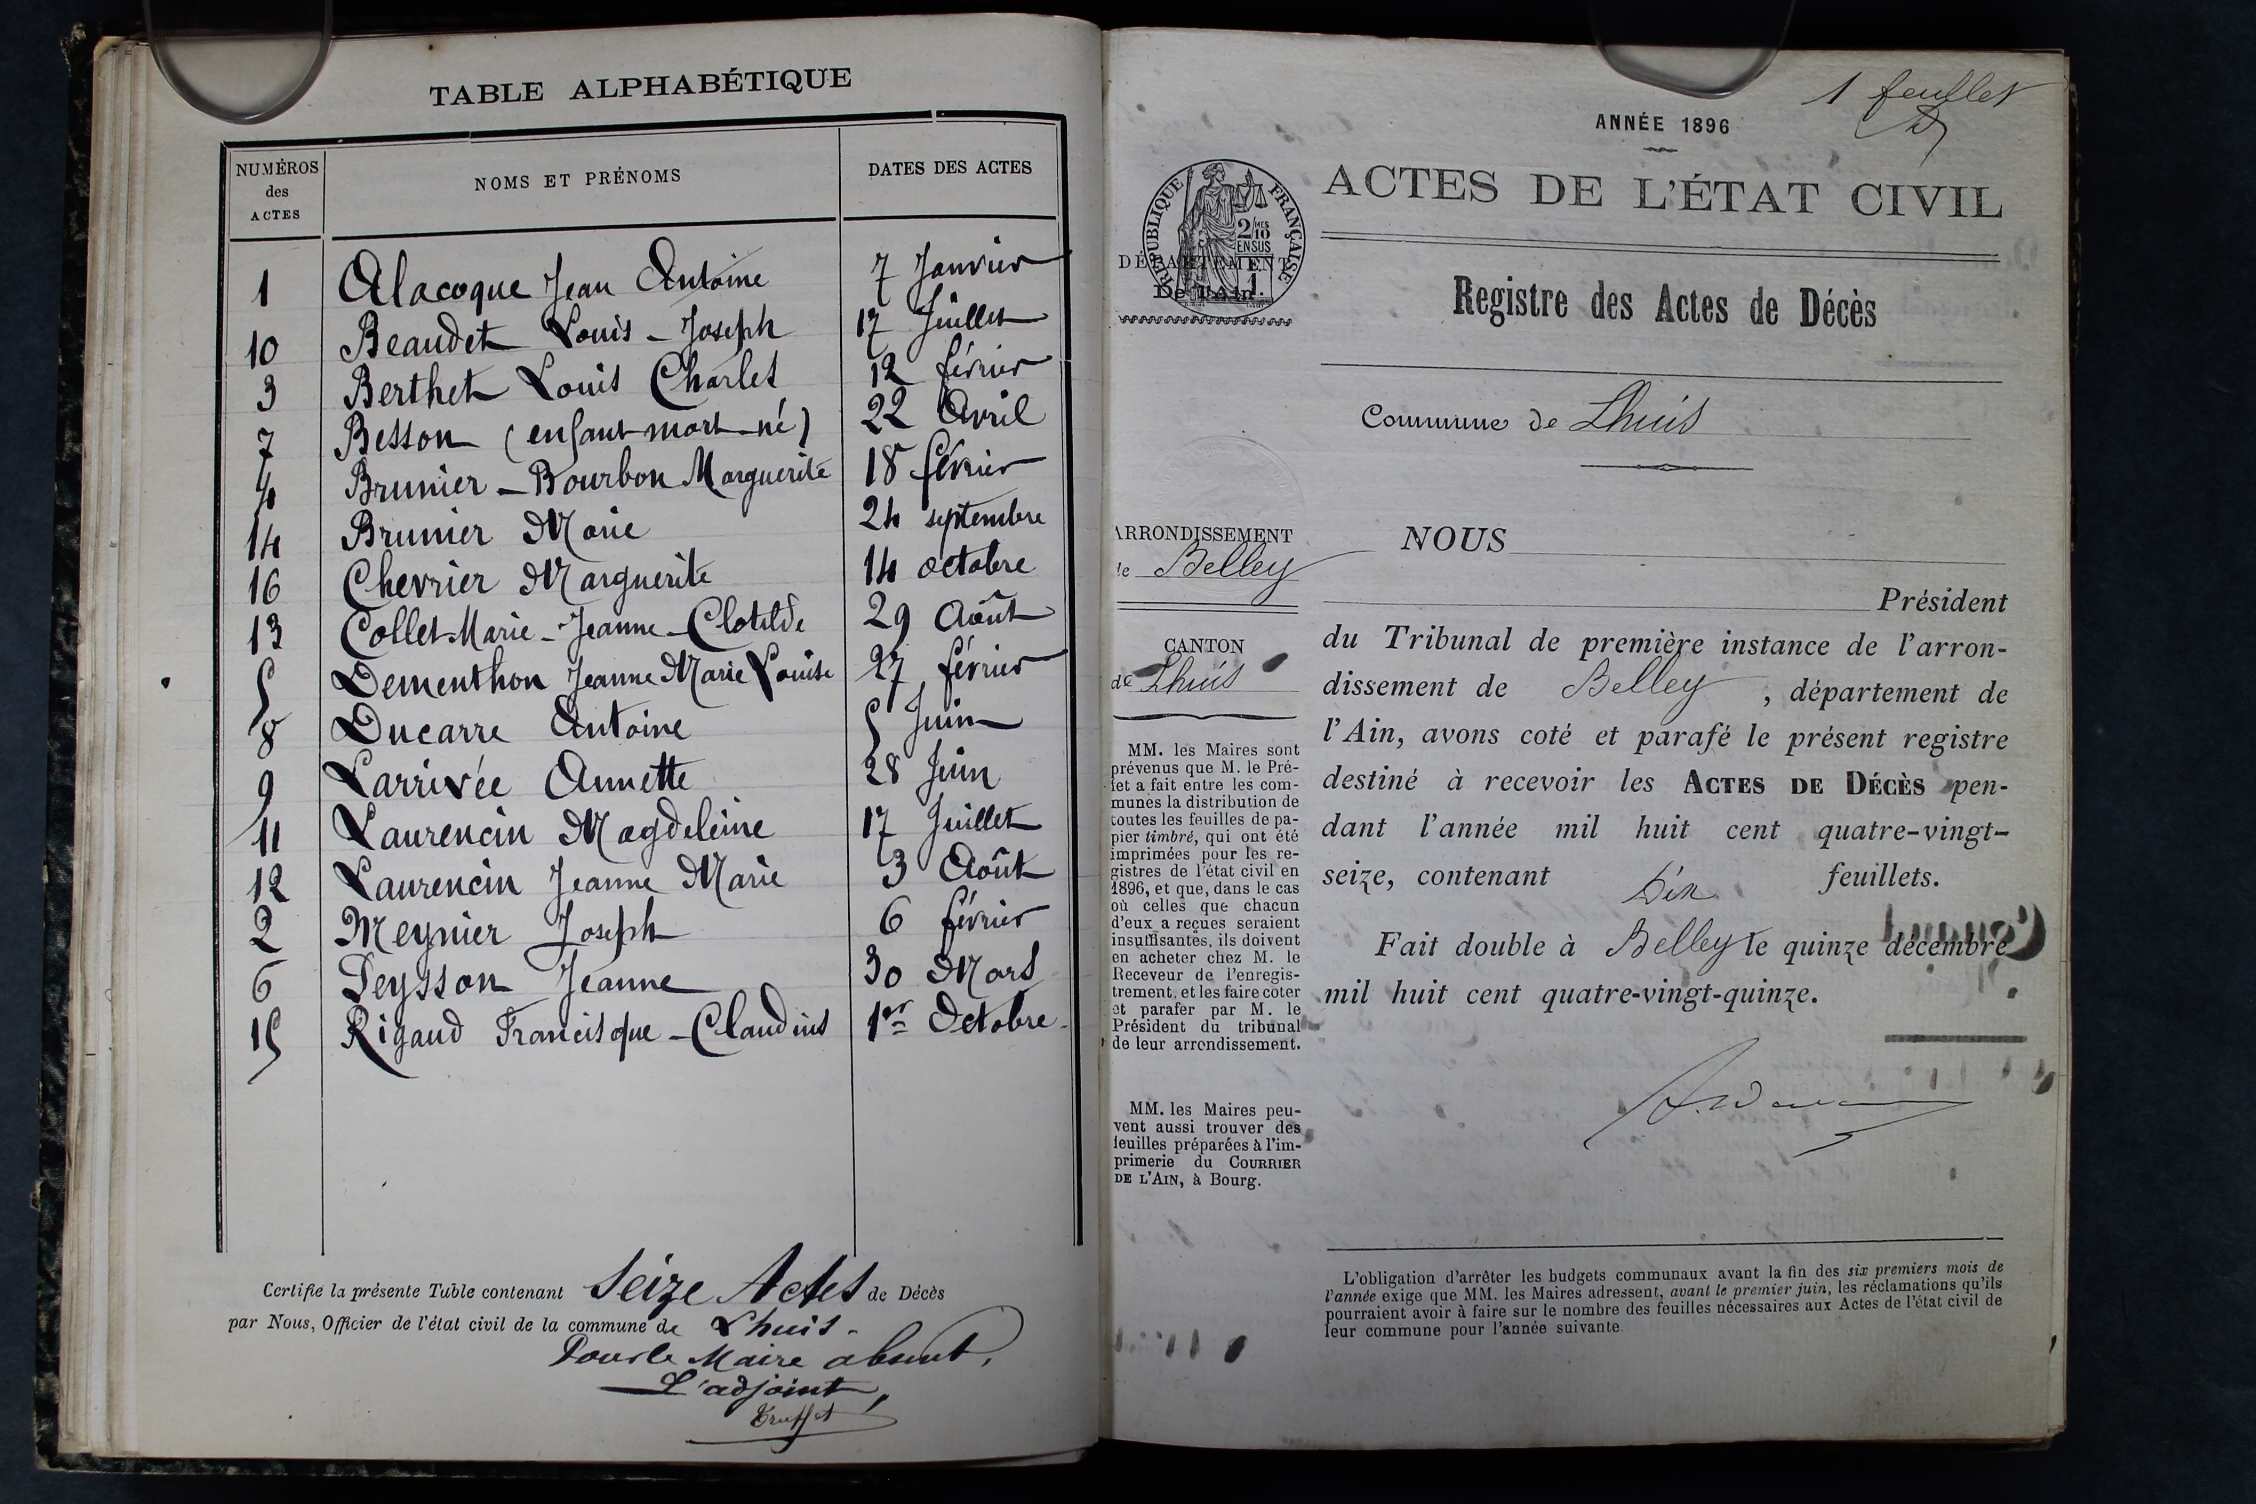 TABLE ALPHABÉTIQUE
NUMÉROS des ACTES
NOMS ET PRÉNOMS
DATES DES ACTES
1 Alacoque Jean Antoine 7 Janvier
10 Beaudet Louis-Joseph 17 Juillet
3 Berthet Louis Charles 12 février
7 Besson (enfant mort-né) 22 Avril
4 Brunier-Bourbon Marguerite 18 février
14 Brunier Marie 24 septembre
16 Chevrier Marguerite 14 octobre
13 Collet Marie-Jeanne-Clotilde 29 Août
5 Dementhon Jeanne Marie Louise 27 février
8 Ducarre Antoine 5 Juin
9 Larrivée Annette 28 Juin
11 Laurencin Magdeleine 17 Juillet
12 Laurencin Jeanne Marie 3 Août
2 Meynier Joseph 6 février
6 Peysson Jeanne 30 Mars
15 Rigaud Francisque-Claudius 1er Octobre
Certifie la présente Table contenant Seize Actes de Décès
par Nous, Officier de l'état civil de la commune de Lhuis.
Pour le Maire absent,
L'adjoint,
Truffet
1 feuillet
ANNÉE 1896
ACTES DE L'ÉTAT CIVIL
RÉPUBLIQUE FRANÇAISE
2/10MES
EN SUS
1
DÉPARTEMENT
De l'Ain.
Registre des Actes de Décès
Commune de Lhuis
ARRONDISSEMENT
de Belley
CANTON
de Lhuis
MM. les Maires sont
prévenus que M. le Pré-
fet a fait entre les com-
munes la distribution de
toutes les feuilles de pa-
pier timbré, qui ont été
imprimées pour les re-
gistres de l'état civil en
1896, et que, dans le cas
où celles que chacun
d'eux a reçues seraient
insuffisantes, ils doivent
en acheter chez M. le
Receveur de l'enregis-
trement, et les faire coter
et parafer par M. le
Président du tribunal
de leur arrondissement.
MM. les Maires peu-
vent aussi trouver des
feuilles préparées à l'im-
primerie du COURRIER
DE L'AIN, à Bourg.
NOUS
Président
du Tribunal de première instance de l'arron-
dissement de Belley, département de
l'Ain, avons coté et parafé le présent registre
destiné à recevoir les ACTES DE DÉCÈS pen-
dant l'année mil huit cent quatre-vingt-
seize, contenant Dix feuillets.
Fait double à Belley le quinze décembre
mil huit cent quatre-vingt-quinze.
L'obligation d'arrêter les budgets communaux avant la fin des six premiers mois de
l'année exige que MM. les Maires adressent, avant le premier juin, les réclamations qu'ils
pourraient avoir à faire sur le nombre des feuilles nécessaires aux Actes de l'état civil de
leur commune pour l'année suivante.